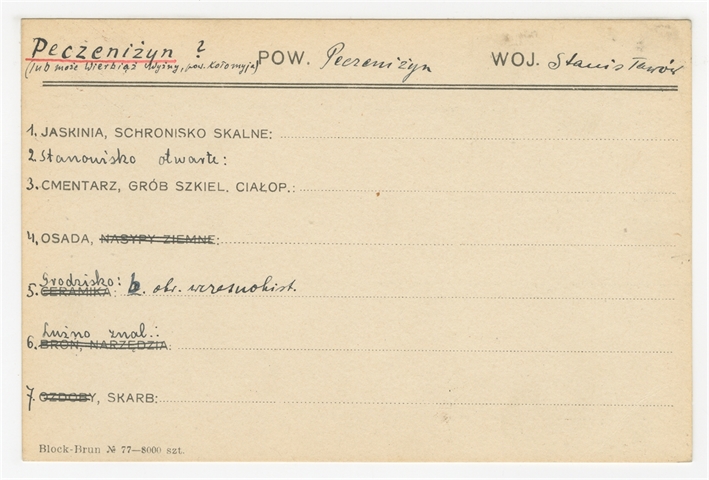 Peczeniżyn ? POW. Peczeniżyn WOJ. Stanisławów
(lub może Wierbiąż Wyżny, pow. Kołomyja)
1. JASKINIA, SCHRONISKO SKALNE:
2. Stanowisko otwarte:
3. CMENTARZ, GRÓB SZKIEL. CIAŁOP.:
4. OSADA, NASYPY ZIEMNE:
Grodzisko:
5. CERAMIKA: b. okr. wczesnohist.
Luźno znal.:
6. BROŃ, NARZĘDZIA:
7. OZDOBY, SKARB:
Block-Brun № 77—8000 szt.